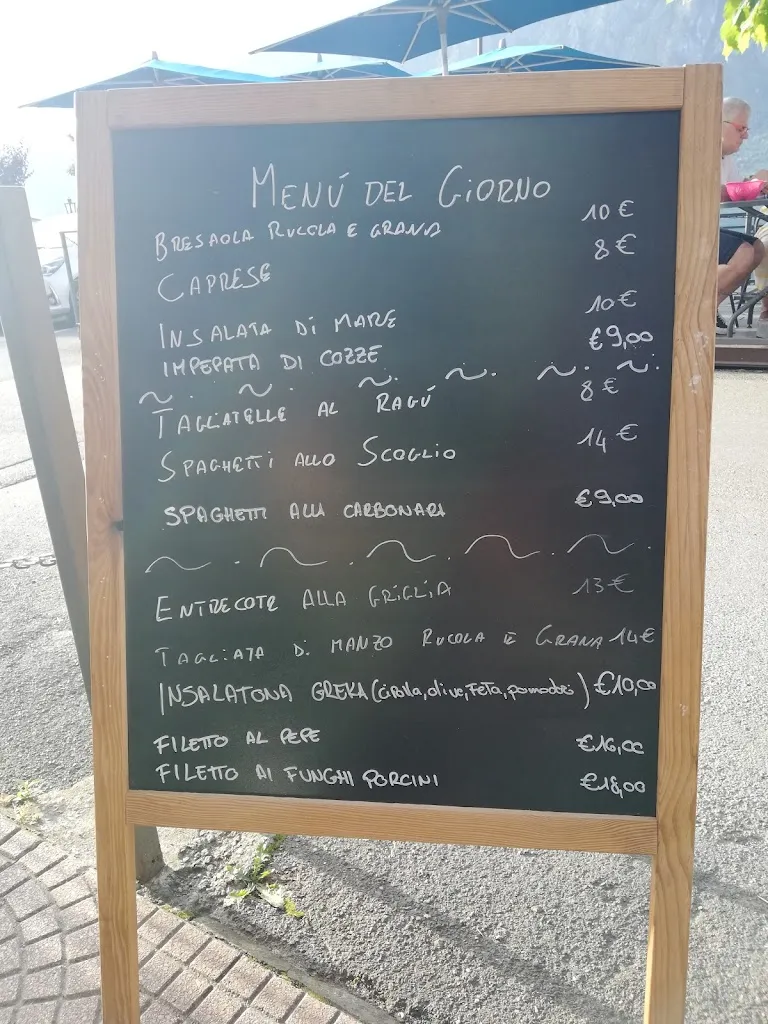 MENÚ DEL GIORNO
BRESAOLA RUCOLA E GRANA 10 €
CAPRESE 8 €
INSALATA DI MARE 10 €
IMPEPATA DI COZZE € 9,00
TAGLIATELLE AL RAGÚ 8 €
SPAGHETTI ALLO SCOGLIO 14 €
SPAGHETTI ALLA CARBONARA € 9,00
ENTRECOTE ALLA GRIGLIA 13 €
TAGLIATA DI MANZO RUCOLA E GRANA 14 €
INSALATONA GREKA (cipolla, olive, Feta, pomodori) € 10,00
FILETTO AL PEPE € 16,00
FILETTO AI FUNGHI PORCINI € 18,00